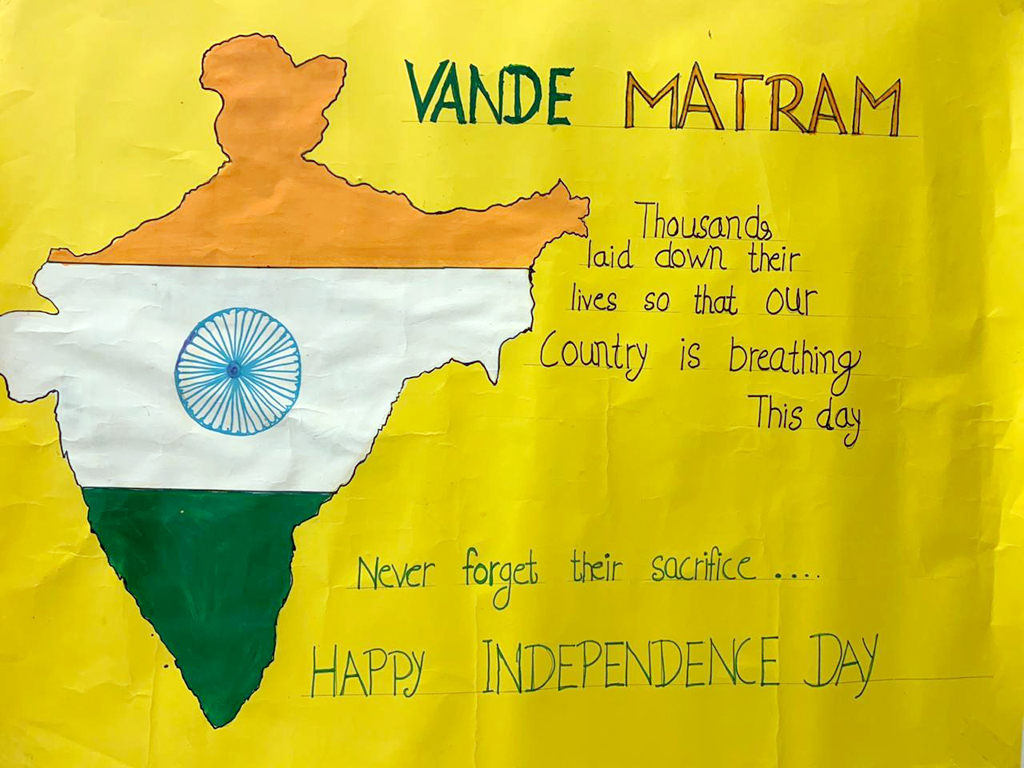 VANDE MATRAM
Thousands
laid down their
lives so that our
Country is breathing
This day
Never forget their sacrifice ....
HAPPY INDEPENDENCE DAY